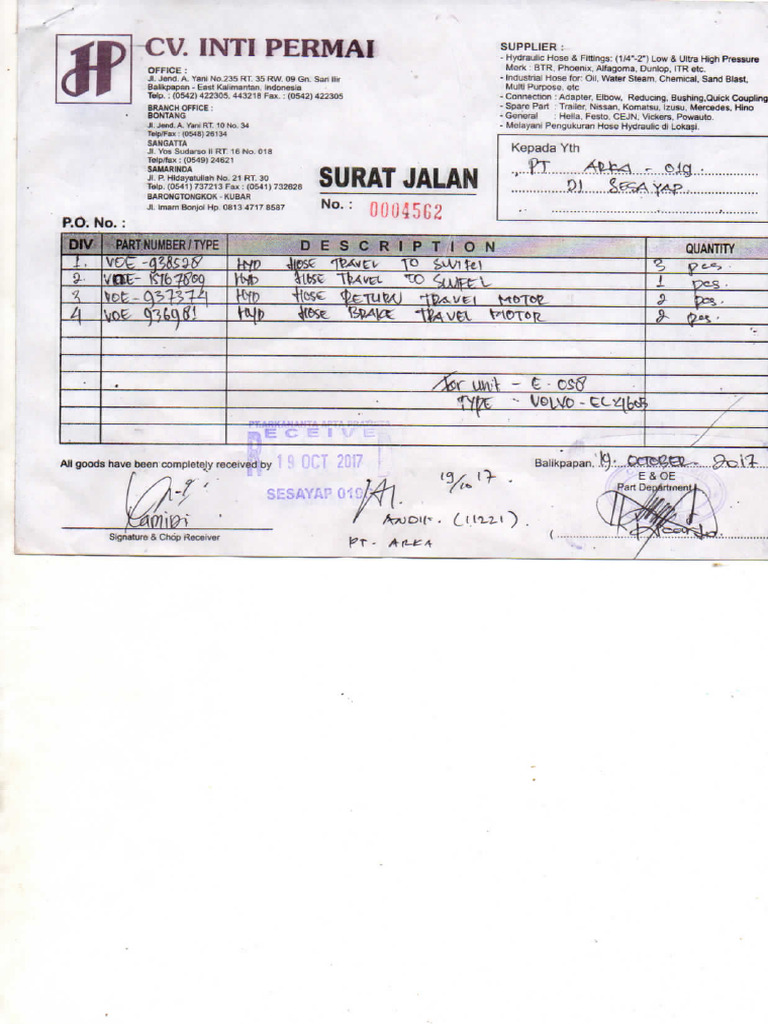 JP
CV. INTI PERMAI
OFFICE :
Jl. Jend. A. Yani No.235 RT. 35 RW. 09 Gn. Sari Ilir
Balikpapan - East Kalimantan, Indonesia
Telp. : (0542) 422305, 443218 Fax. : (0542) 422305
BRANCH OFFICE :
BONTANG
Jl. Jend. A. Yani RT. 10 No. 34
Telp/Fax : (0548) 26134
SANGATTA
Jl. Yos Sudarso II RT. 16 No. 018
Telp/fax : (0549) 24621
SAMARINDA
Jl. P. Hidayatullah No. 21 RT. 30
Telp. (0541) 737213 Fax : (0541) 732626
BARONGTONGKOK - KUBAR
Jl. Imam Bonjol Hp. 0813 4717 8587
SUPPLIER :
- Hydraulic Hose & Fittings: (1/4"-2") Low & Ultra High Pressure
Merk : BTR, Phoenix, Alfagoma, Dunlop, ITR etc.
- Industrial Hose for: Oil, Water Steam, Chemical, Sand Blast,
Multi Purpose, etc
- Connection : Adapter, Elbow, Reducing, Bushing,Quick Coupling
- Spare Part : Trailer, Nissan, Komatsu, Izusu, Mercedes, Hino
- General : Hella, Festo, CEJN, Vickers, Powauto.
- Melayani Pengukuran Hose Hydraulic di Lokasi.
Kepada Yth
PT ARKA - 019
DI SESAYAP
SURAT JALAN
No. : 0004562
P.O. No. :
DIV PART NUMBER / TYPE DESCRIPTION QUANTITY
1. VOE - 938528 HYD HOSE TRAVEL TO SWIFEL 3 pcs.
2 VOE- 15167809 HYD HOSE TRAVEL TO SWIFEL 1 pcs.
3 VOE - 937374 HYD HOSE RETURN TRAVEL MOTOR 2 pcs.
4 VOE 936981 HYD HOSE BRAKE TRAVEL MOTOR 2 pcs.
For unit - E - 058
TYPE - VOLVO - EC
RECEIVE
19 OCT 2017
SESAYAP 010
All goods have been completely received by
Balikpapan, 19 OCTOBER 2017
E & OE
Part Department
19/10 17.
ANDIK. (11221).
PT - ARKA
Signature & Chop Receiver